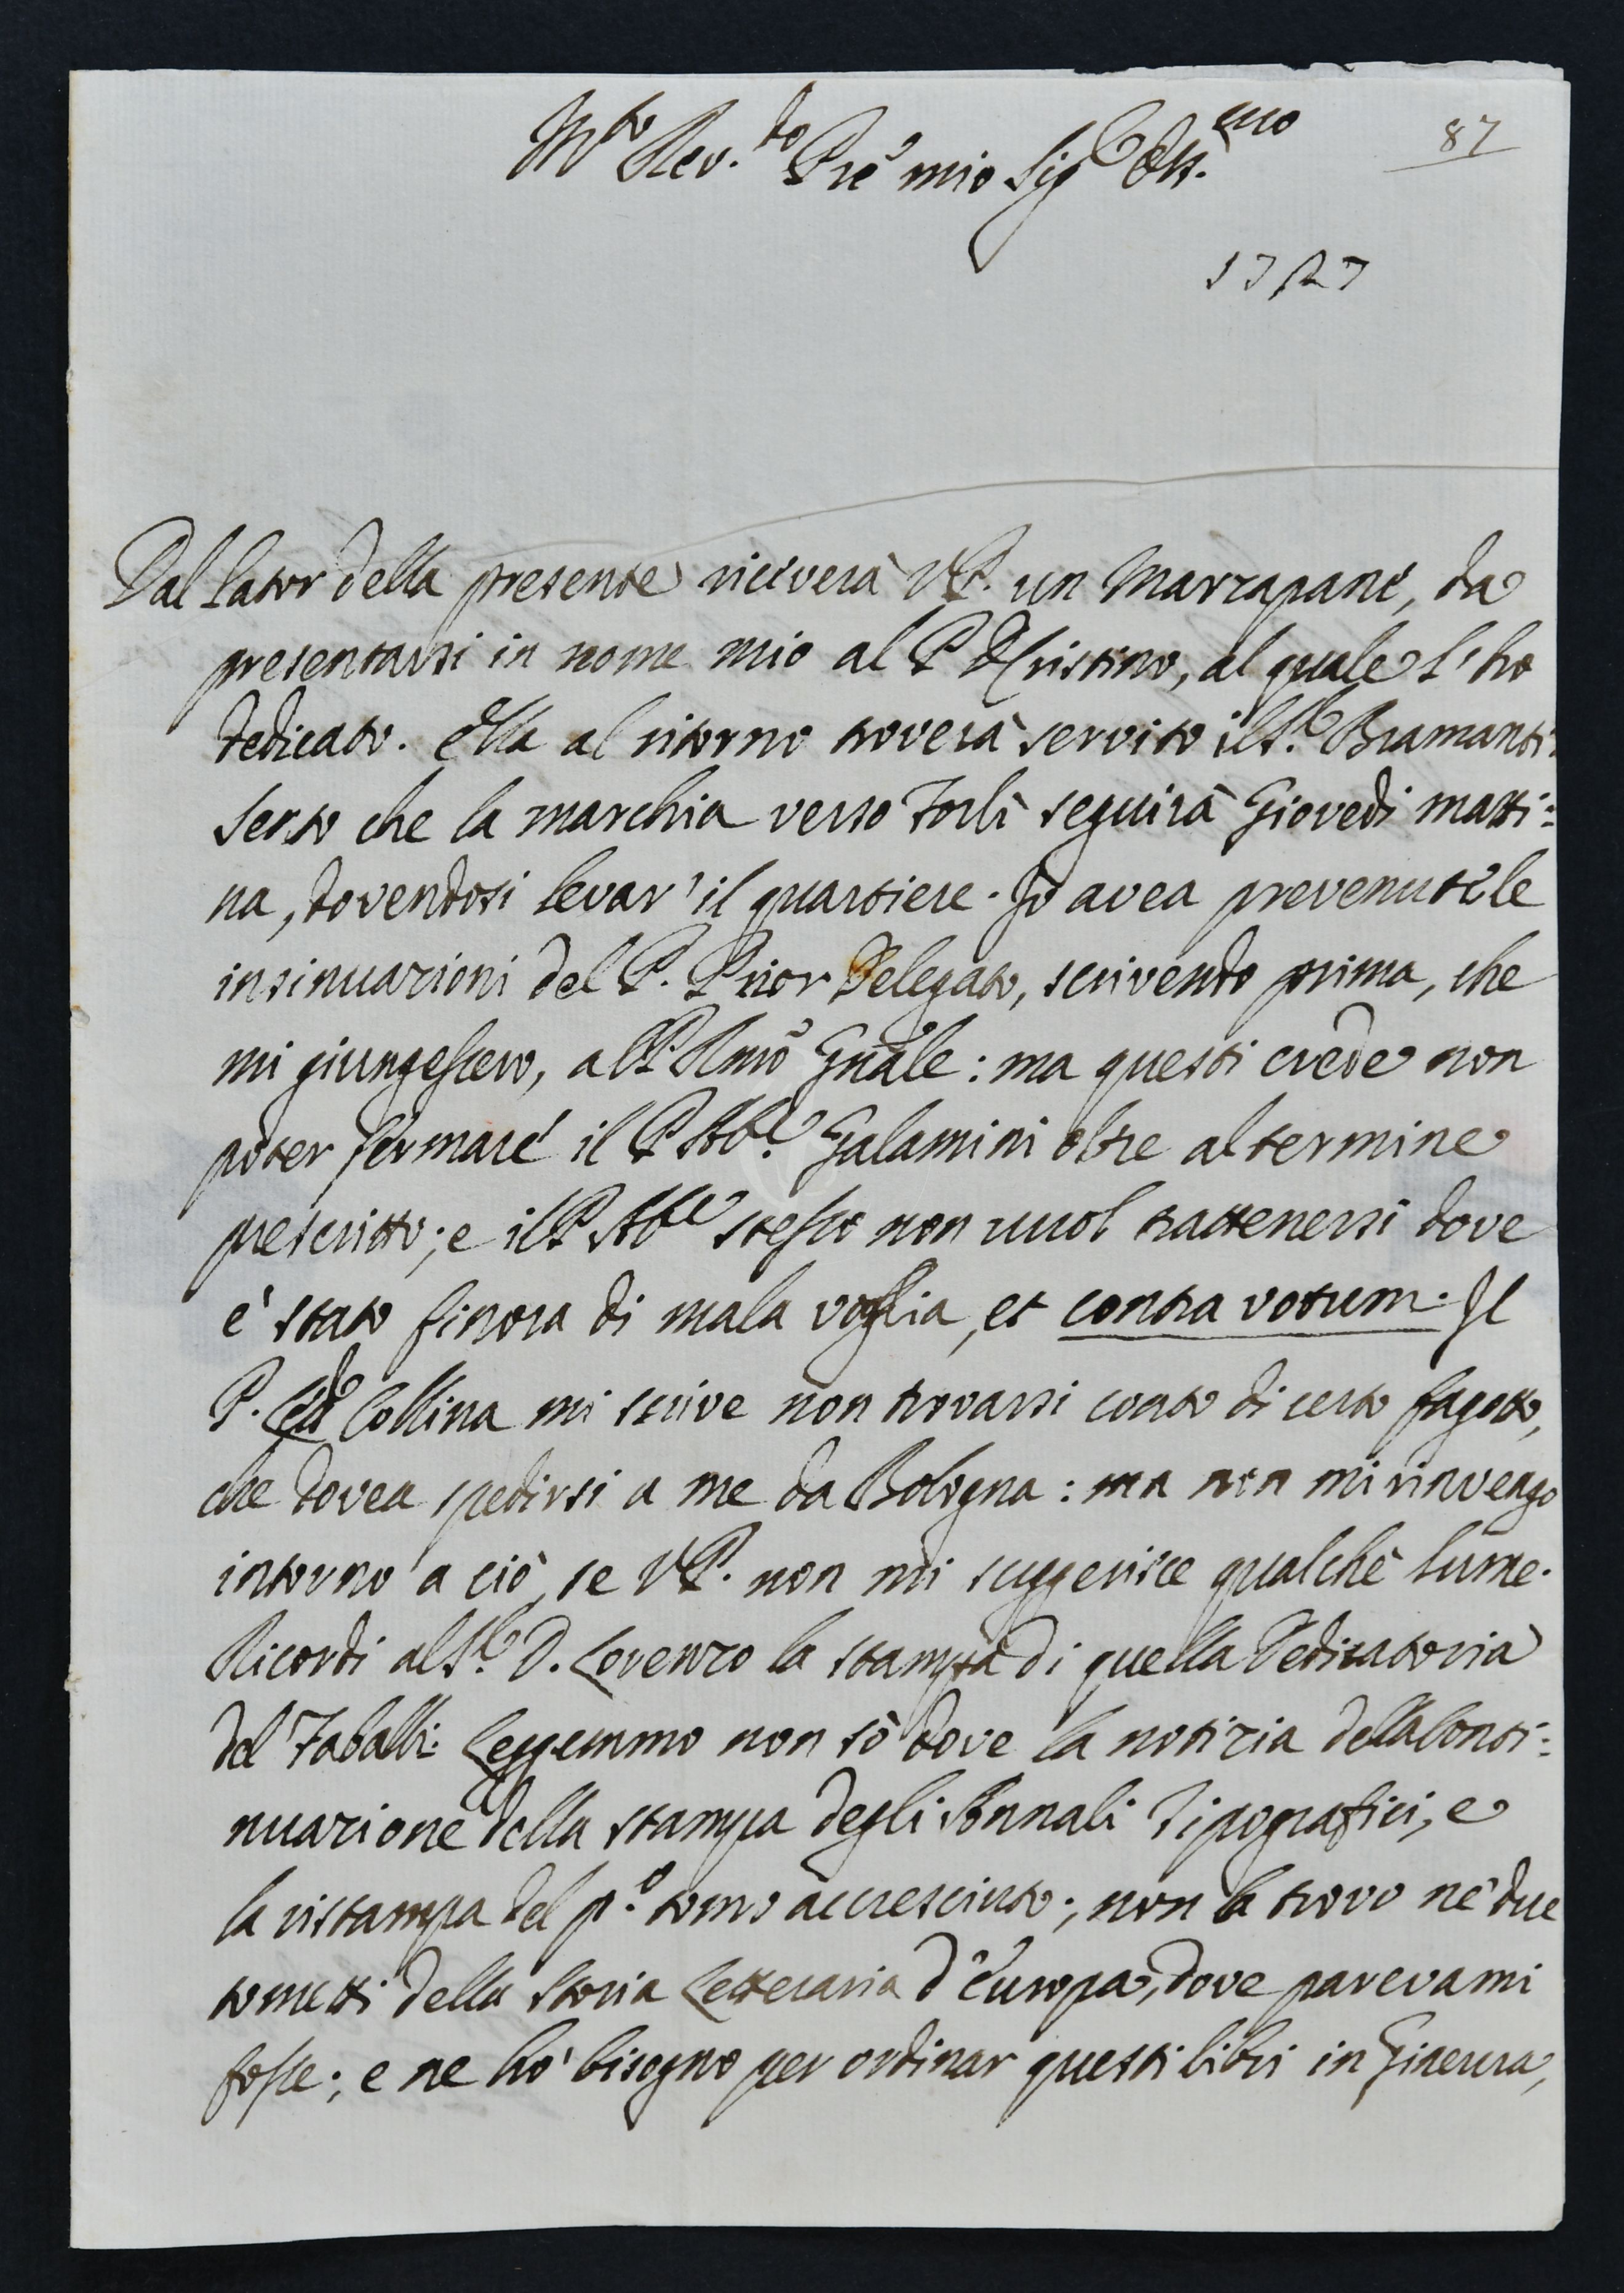 87
M.to Rev.do Pre mio Sig.e Oss.mo
1727
Dal lator della presente riceverà V.P. un Marzapane, da
presentarsi in nome mio al P. Cristino, al quale l'ho
dedicato. Ella al ritorno troverà servito il S.e Bramanti.
Sento che la marchia verso Forlì seguirà Giovedì matti:
na, dovendosi levar' il quartiere. Io avea prevenute le
insinuazioni del P. Prior Delegato, scrivendo prima, che
mi giungessero, al P. Rmo Gnãle: ma questi crede non
poter fermare il P. Abb.e Galamini oltre al termine
prescritto; e il P. Abb.e stesso non vuol trattenersi dove
è stato finora di mala voglia, et contra votum. Il
P. Collina mi scrive non trovarsi conto di certo fagotto,
che dovea spedirsi a me da Bologna: ma non mi rinvengo
intorno a ciò, se V.P. non mi suggerisce qualche lume.
Ricordi al S.e D. Lorenzo la stampa di quella Dedicatoria
del Leggemmo non sò dove la notizia della Conti:
nuazione della stampa degli Annali Tipografici, e
la ristampa del p.o tomo accresciuto; non la trovo ne' due
tometti della Storia Letteraria d'Europa, dove parevami
fosse; e ne hò bisogno per ordinar questi libri in Ginevra,